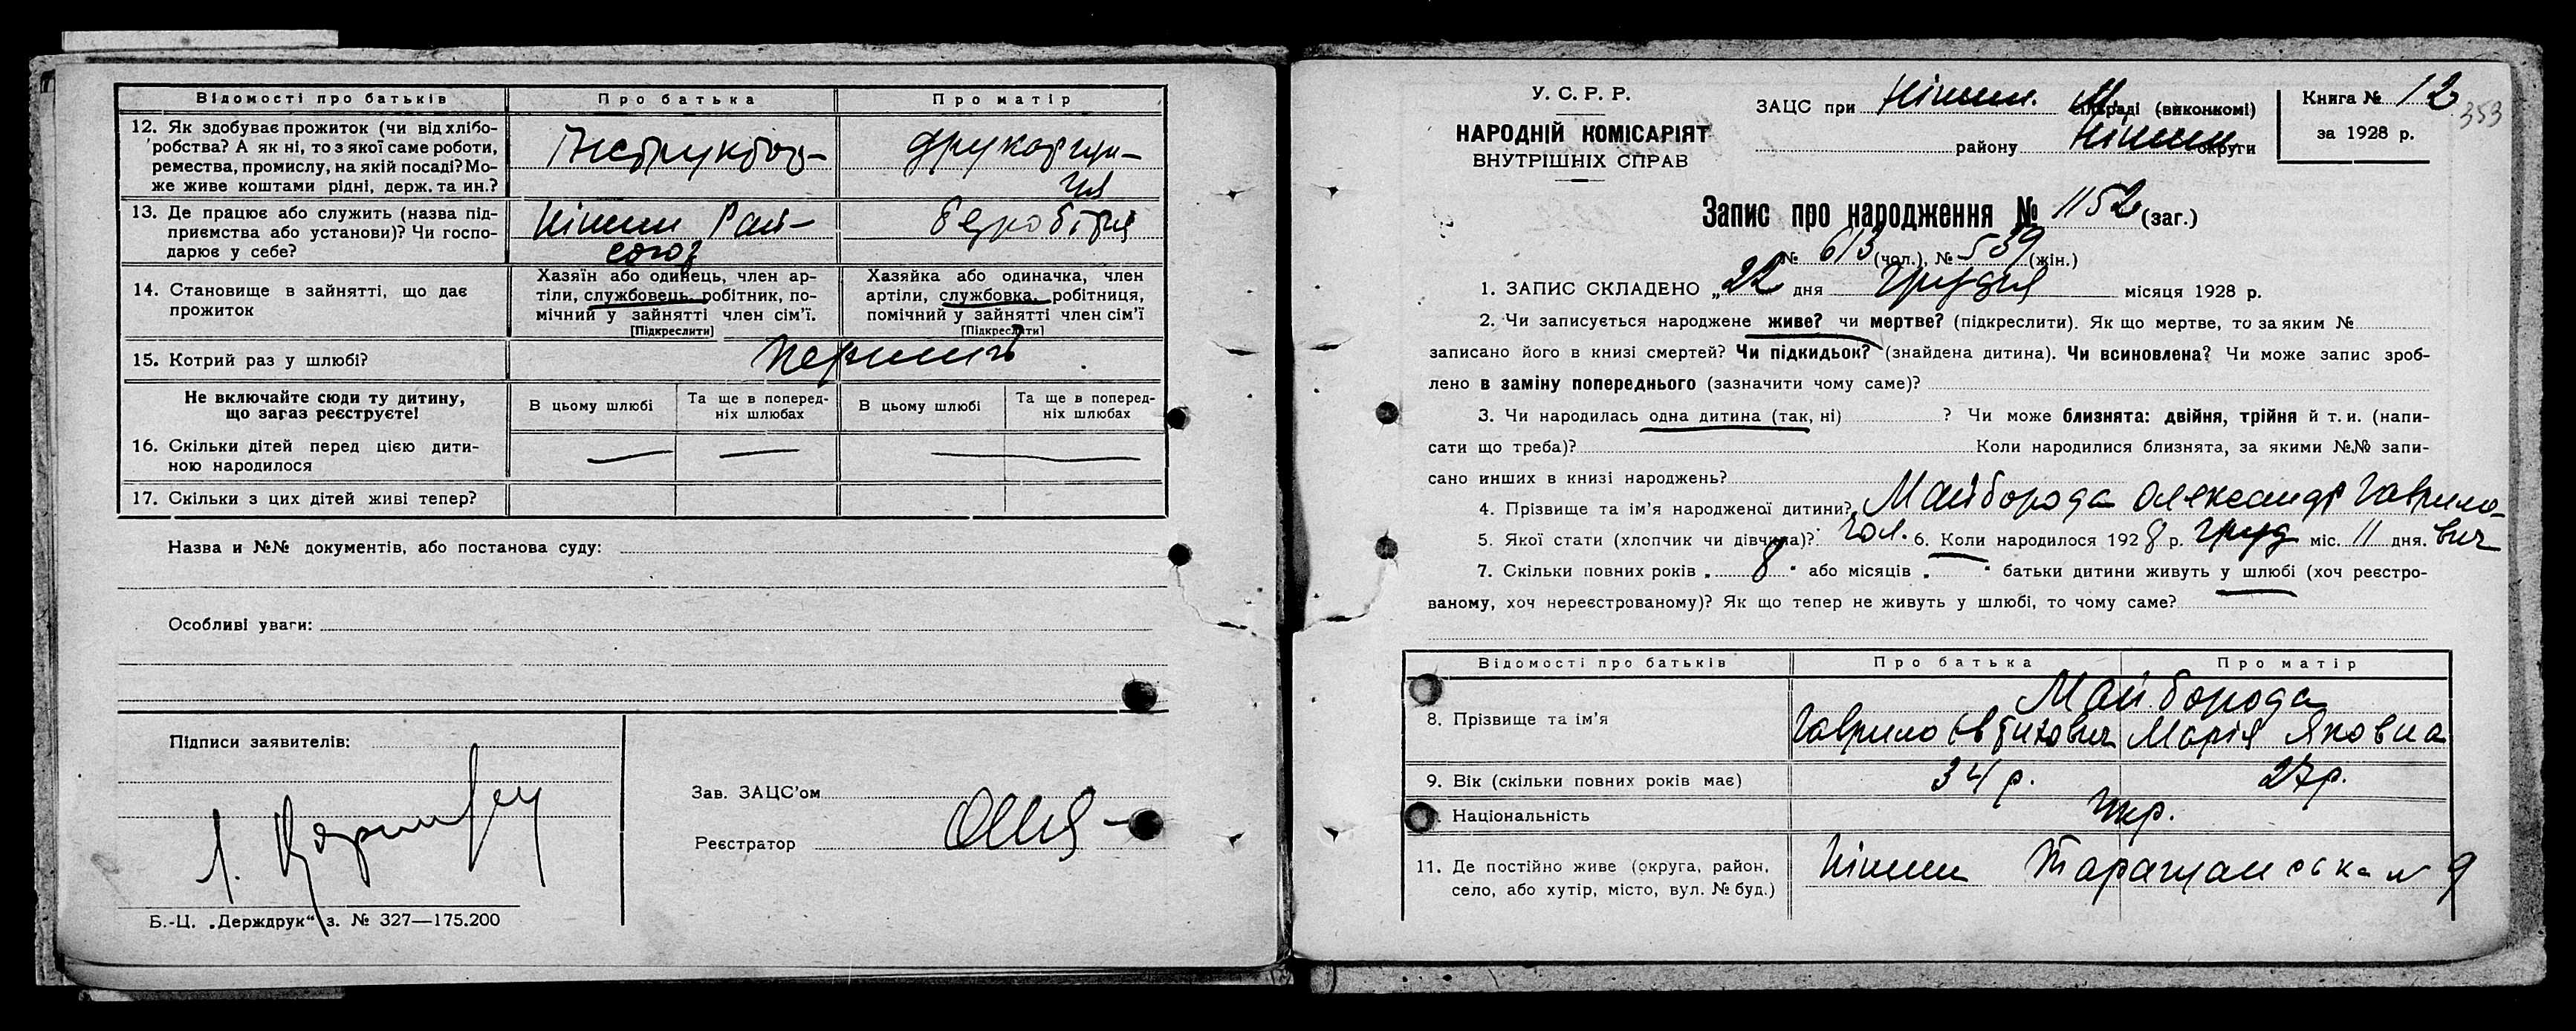 Відомості про батьків Про батька Про матір
12. Як здобуває прожиток (чи від хлібо-
робства? А як ні, то з якої саме роботи,
ремества, промислу, на якій посаді? Мо-
же живе коштами рідні, держ. та ин.?
Інструктор друкарщи-
ця
13. Де працює або служить (назва під-
приємства або установи)? Чи госпо-
дарює у себе?
Ніжин Рай-
союз
безробітня
14. Становище в зайнятті, що дає
прожиток
Хазяїн або одинець, член ар-
тіли, службовець, робітник, по-
мічний у зайнятті член сім'ї.
[Підкреслити]
Хазяйка або одиначка, член
артіли, службовка, робітниця,
помічний у зайнятті член сім'ї
[Підкреслити]
15. Котрий раз у шлюбі? перший
Не включайте сюди ту дитину,
що загаз реєструєте!
В цьому шлюбі
Та ще в поперед-
ніх шлюбах
В цьому шлюбі
Та ще в поперед-
ніх шлюбах
16. Скільки дітей перед цією дити-
ною народилося
17. Скільки з цих дітей живі тепер?
Назва и №№ документів, або постанова суду:
Особливі уваги:
Підписи заявителів:
Зав. ЗАЦС'ом
Реєстратор
Б.-Ц. „Держдрук“ з. № 327—175.200
У. С. Р. Р.
НАРОДНІЙ КОМІСАРІЯТ
ВНУТРІШНІХ СПРАВ
ЗАЦС при Ніжин. М. сільраді (виконкомі)
району Ніжин округи
Книга № 12
за 1928 р.
353
Запис про народження № 1152 (заг.)
№ 613 (чол.), № 539 (жін.)
1. ЗАПИС СКЛАДЕНО „22 дня грудня місяця 1928 р.
2. Чи записується народжене живе? чи мертве? (підкреслити). Як що мертве, то за яким №
записано його в книзі смертей? Чи підкидьок? (знайдена дитина). Чи всиновлена? Чи може запис зроб-
лено в заміну попереднього (зазначити чому саме)?
3. Чи народилась одна дитина (так, ні) ? Чи може близнята: двійня, трійня й т. и. (напи-
сати що треба)? Коли народилися близнята, за якими №№ запи-
сано инших в книзі народжень?
4. Прізвище та ім'я народженої дитини? Майборода Олександр Гаврило-
вич
5. Якої стати (хлопчик чи дівчина)? чол. 6. Коли народилося 1928 р. груд міс. 11 дня.
7. Скільки повних років „ 8 “ або місяців „ “ батьки дитини живуть у шлюбі (хоч реєстро-
ваному, хоч нереєстрованому)? Як що тепер не живуть у шлюбі, то чому саме?
Відомості про батьків Про батька Про матір
Майборода
8. Прізвище та ім'я Гаврило Євтихович Марія Яковна
9. Вік (скільки повних років має) 34 р. 27 р.
Національність Укр.
11. Де постійно живе (округа, район,
село, або хутір, місто, вул. № буд.)
Ніжин Таращанська № 9